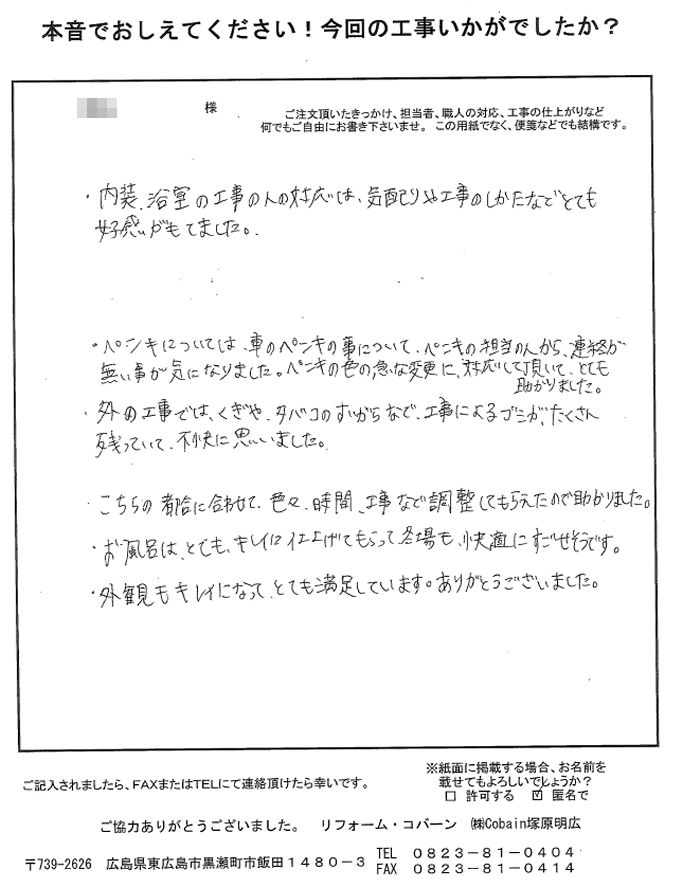 本音でおしえてください！今回の工事いかがでしたか？
様
ご注文頂いたきっかけ、担当者、職人の対応、工事の仕上がりなど
何でもご自由にお書き下さいませ。この用紙でなく、便箋などでも結構です。
・内装、浴室の工事の人の対応は、気配りや工事のしかたなどとても
好感がもてました。
・ペンキについては、車のペンキの事について、ペンキの担当の人から、連絡が
無い事が気になりました。ペンキの色の急な変更に、対応して頂いて、とても
助かりました。
・外の工事では、くぎや、タバコのすいがらなど、工事によるゴミが、たくさん
残っていて、不快に思いました。
・こちらの都合に合わせて、色々、時間、工事など調整してもらえたので助かりました。
・お風呂は、とても、キレイに仕上げてもらって冬場も、快適にすごせそうです。
・外観もキレイになって、とても満足しています。ありがとうございました。
ご記入されましたら、FAXまたはTELにて連絡頂けたら幸いです。
※紙面に掲載する場合、お名前を
載せてもよろしいでしょうか？
□ 許可する ☑ 匿名で
ご協力ありがとうございました。 リフォーム・コバーン ㈱Cobain塚原明広
〒739-2626 広島県東広島市黒瀬町市飯田１４８０－３
TEL ０８２３－８１－０４０４
FAX ０８２３－８１－０４１４